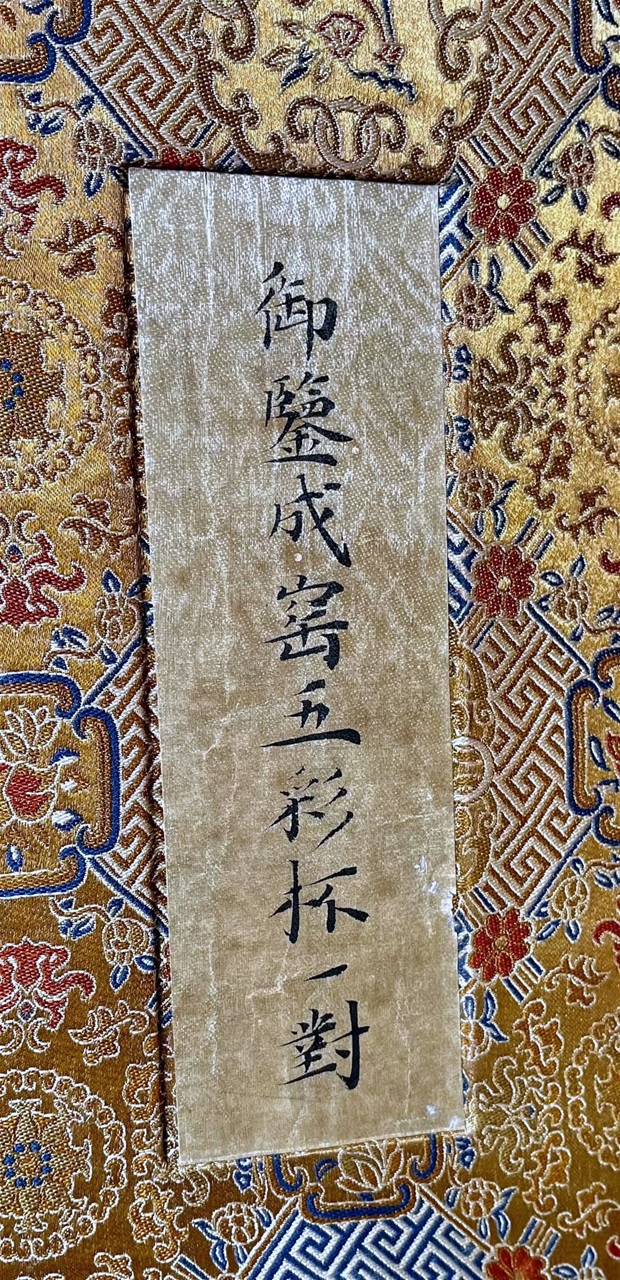 御鑒成窑五彩杯一對